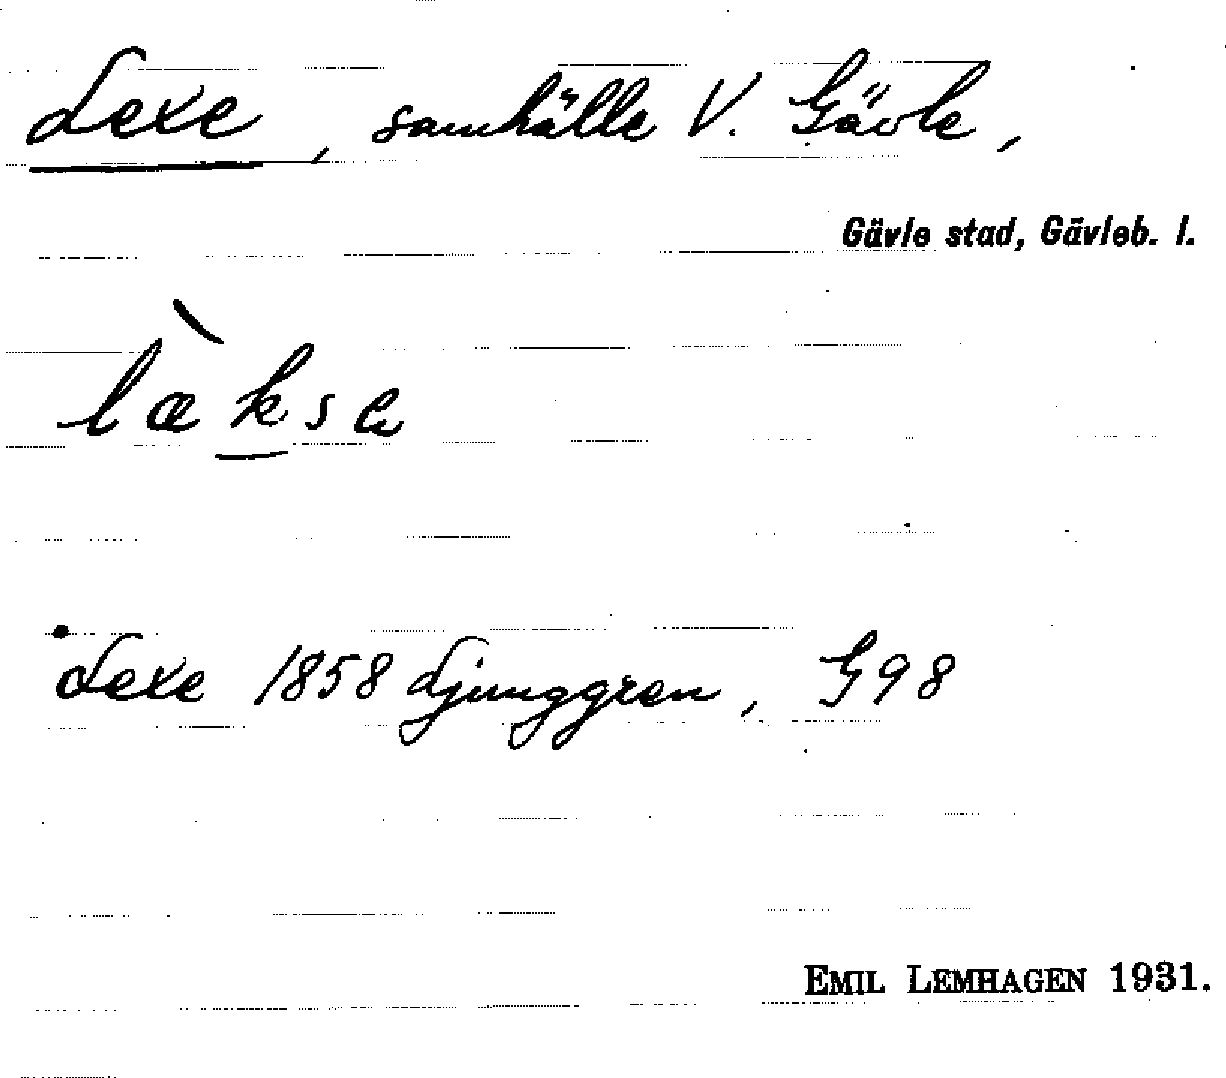 Lexe, samhälle V. Gävle,
Gävle stad, Gävleb. l.
læ̀kse
Lexe 1858 Ljunggren, G98
EMIL LEMHAGEN 1931.